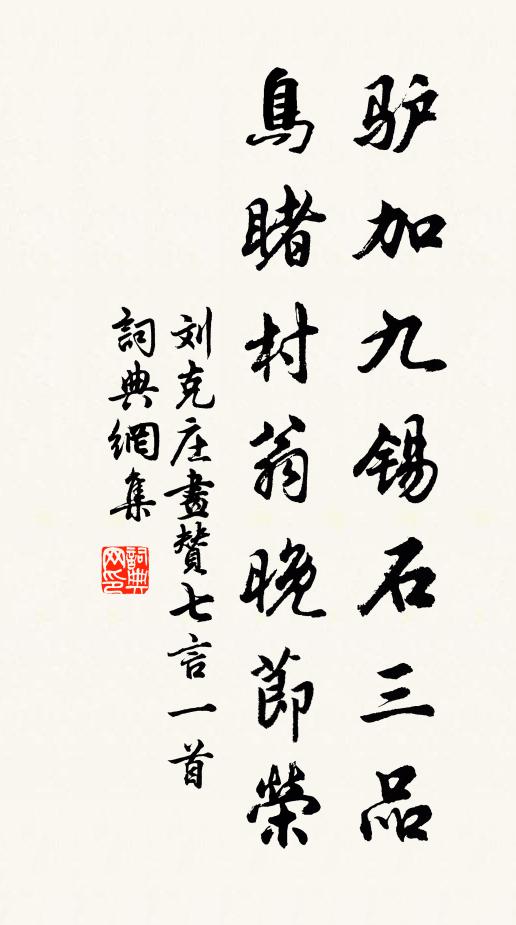 驴加九錫石三品
鳥睹村翁晚莭榮
刘克庄畫賛七言一首
詞典網集
詞典网印